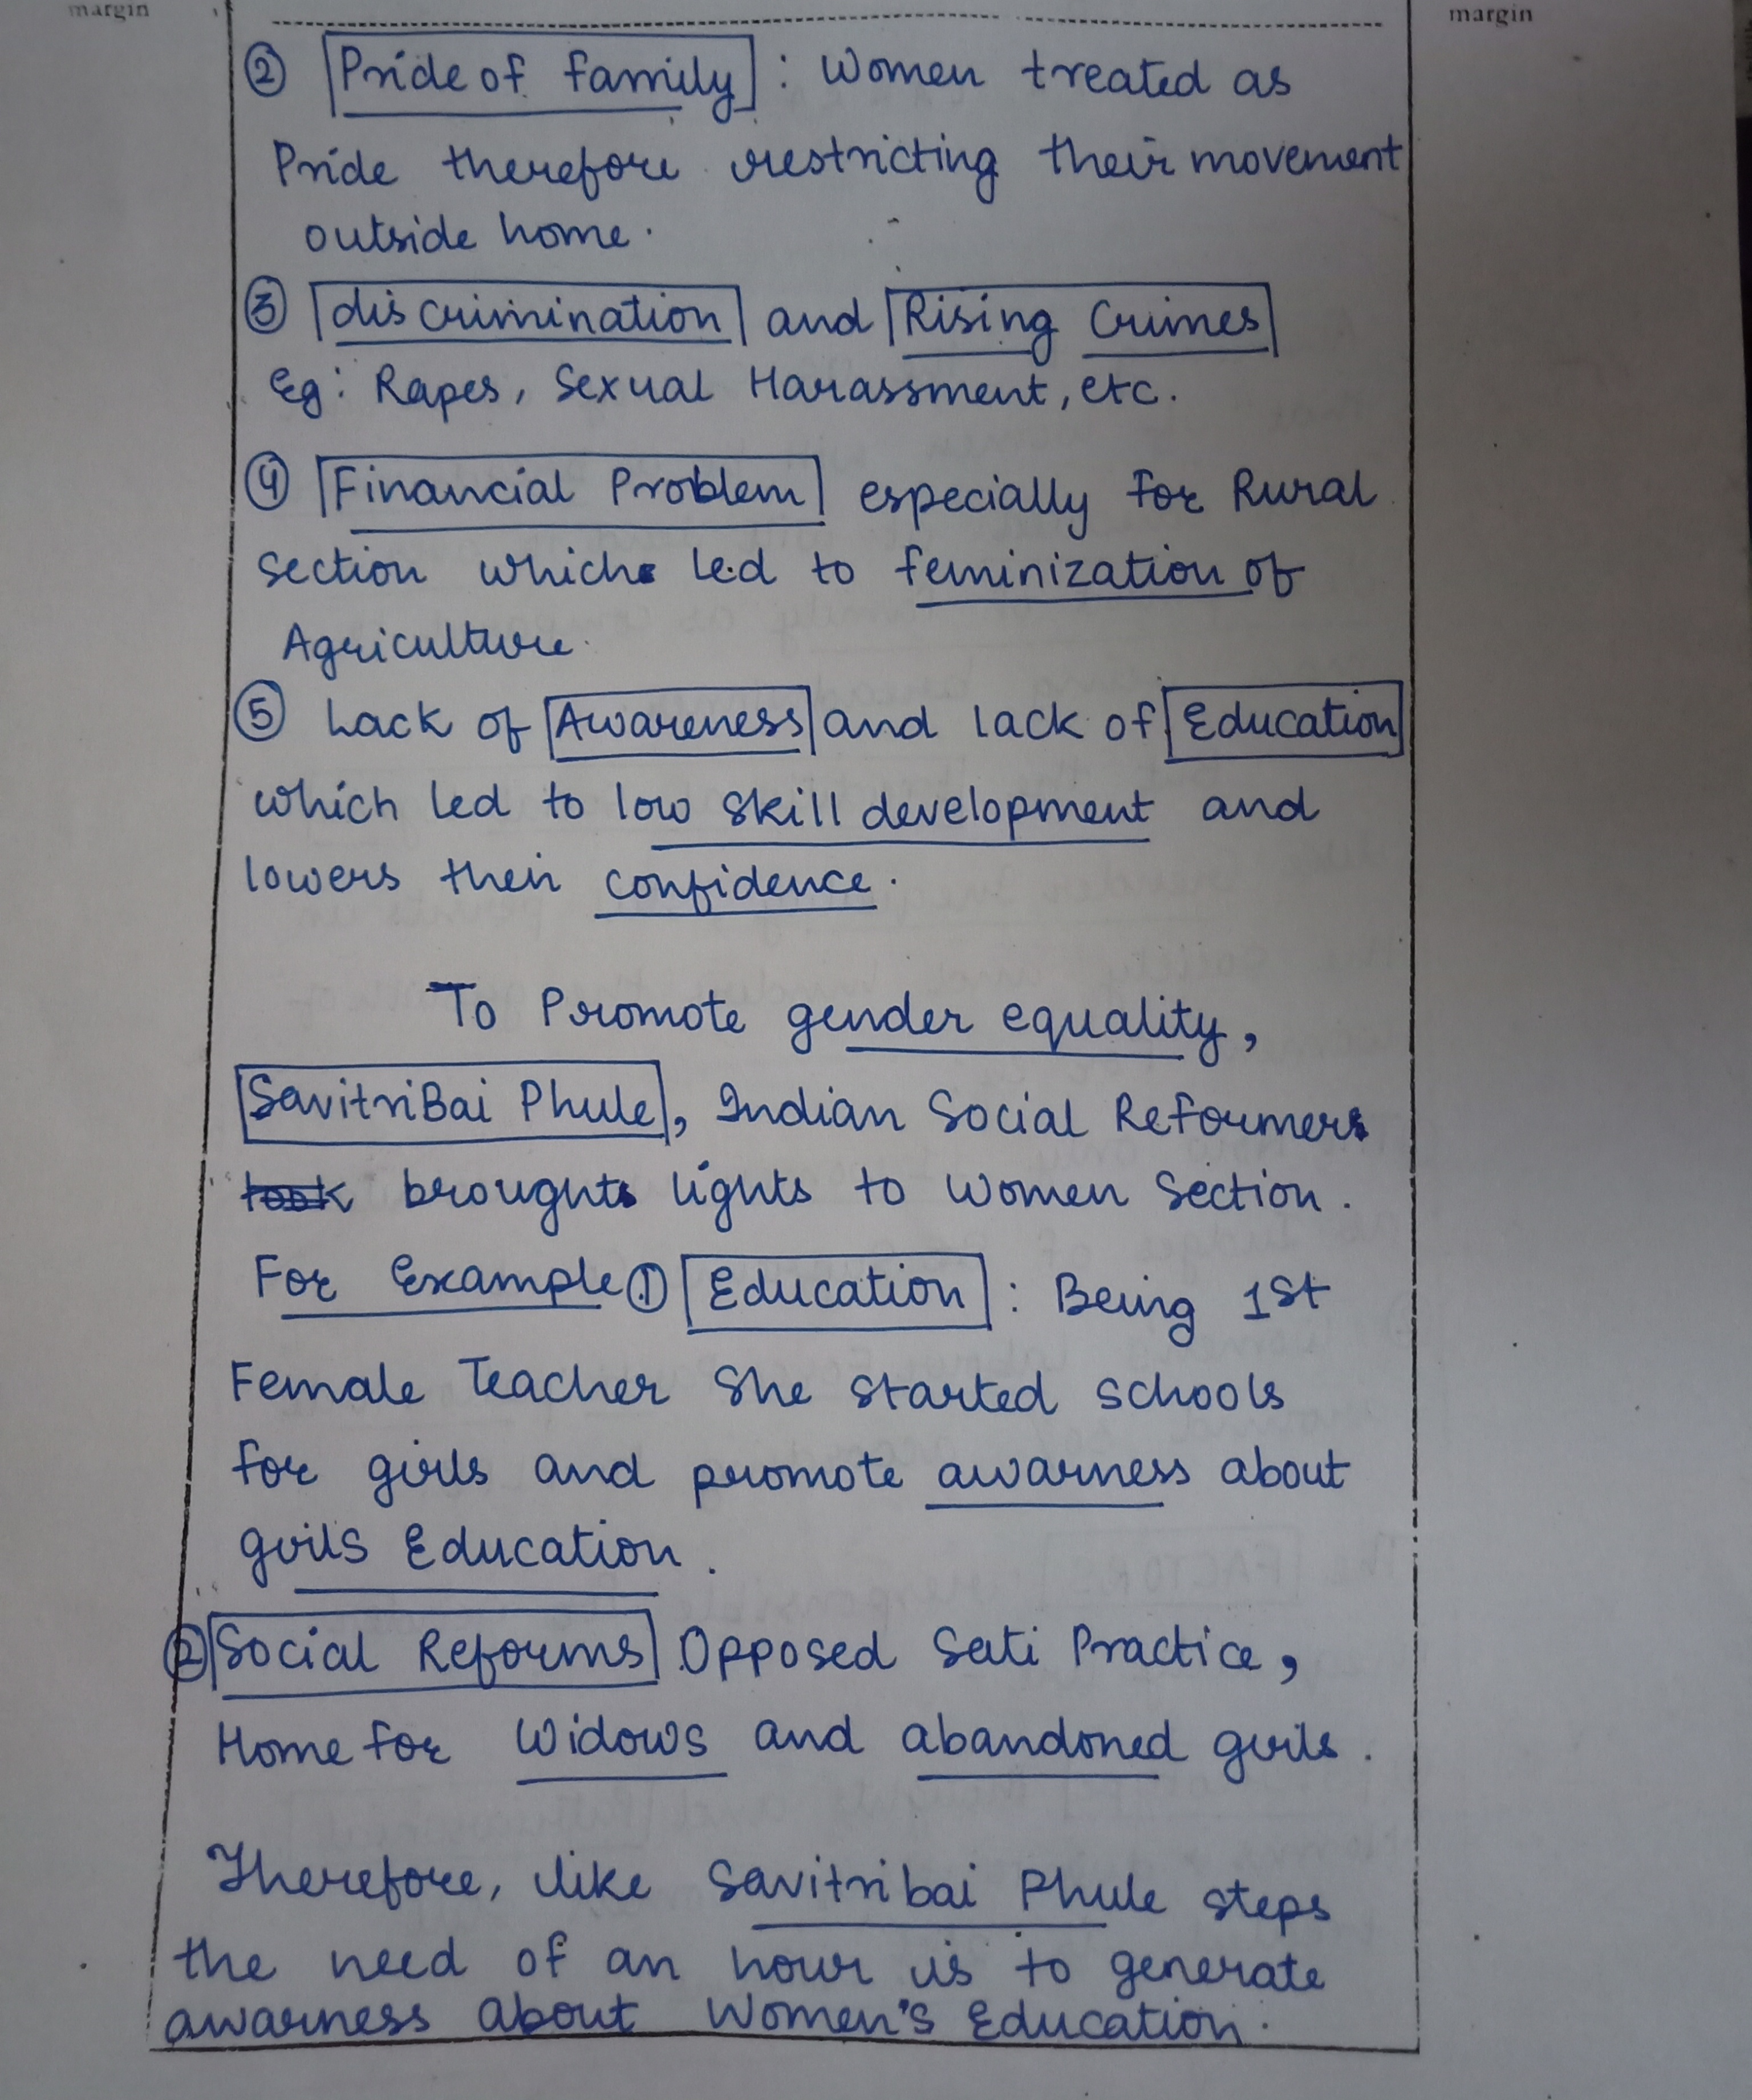 margin
margin
② Pride of family : Women treated as
Pride therefore restricting their movement
outside home.
③ discrimination and Rising Crimes
Eg: Rapes, Sexual Harassment, etc.
④ Financial Problem especially for Rural
section which led to feminization of
Agriculture.
⑤ Lack of Awareness and lack of Education
which led to low skill development and
lowers their confidence.
To Promote gender equality,
SavitriBai Phule, Indian Social Reformers
took brought lights to women section.
For Example ① Education : Being 1st
Female Teacher She started schools
for girls and promote awarness about
girls Education.
② Social Reforms Opposed Sati Practice,
Home for Widows and abandoned girls.
Therefore, like Savitribai Phule steps
the need of an hour is to generate
awarness about Women's Education.